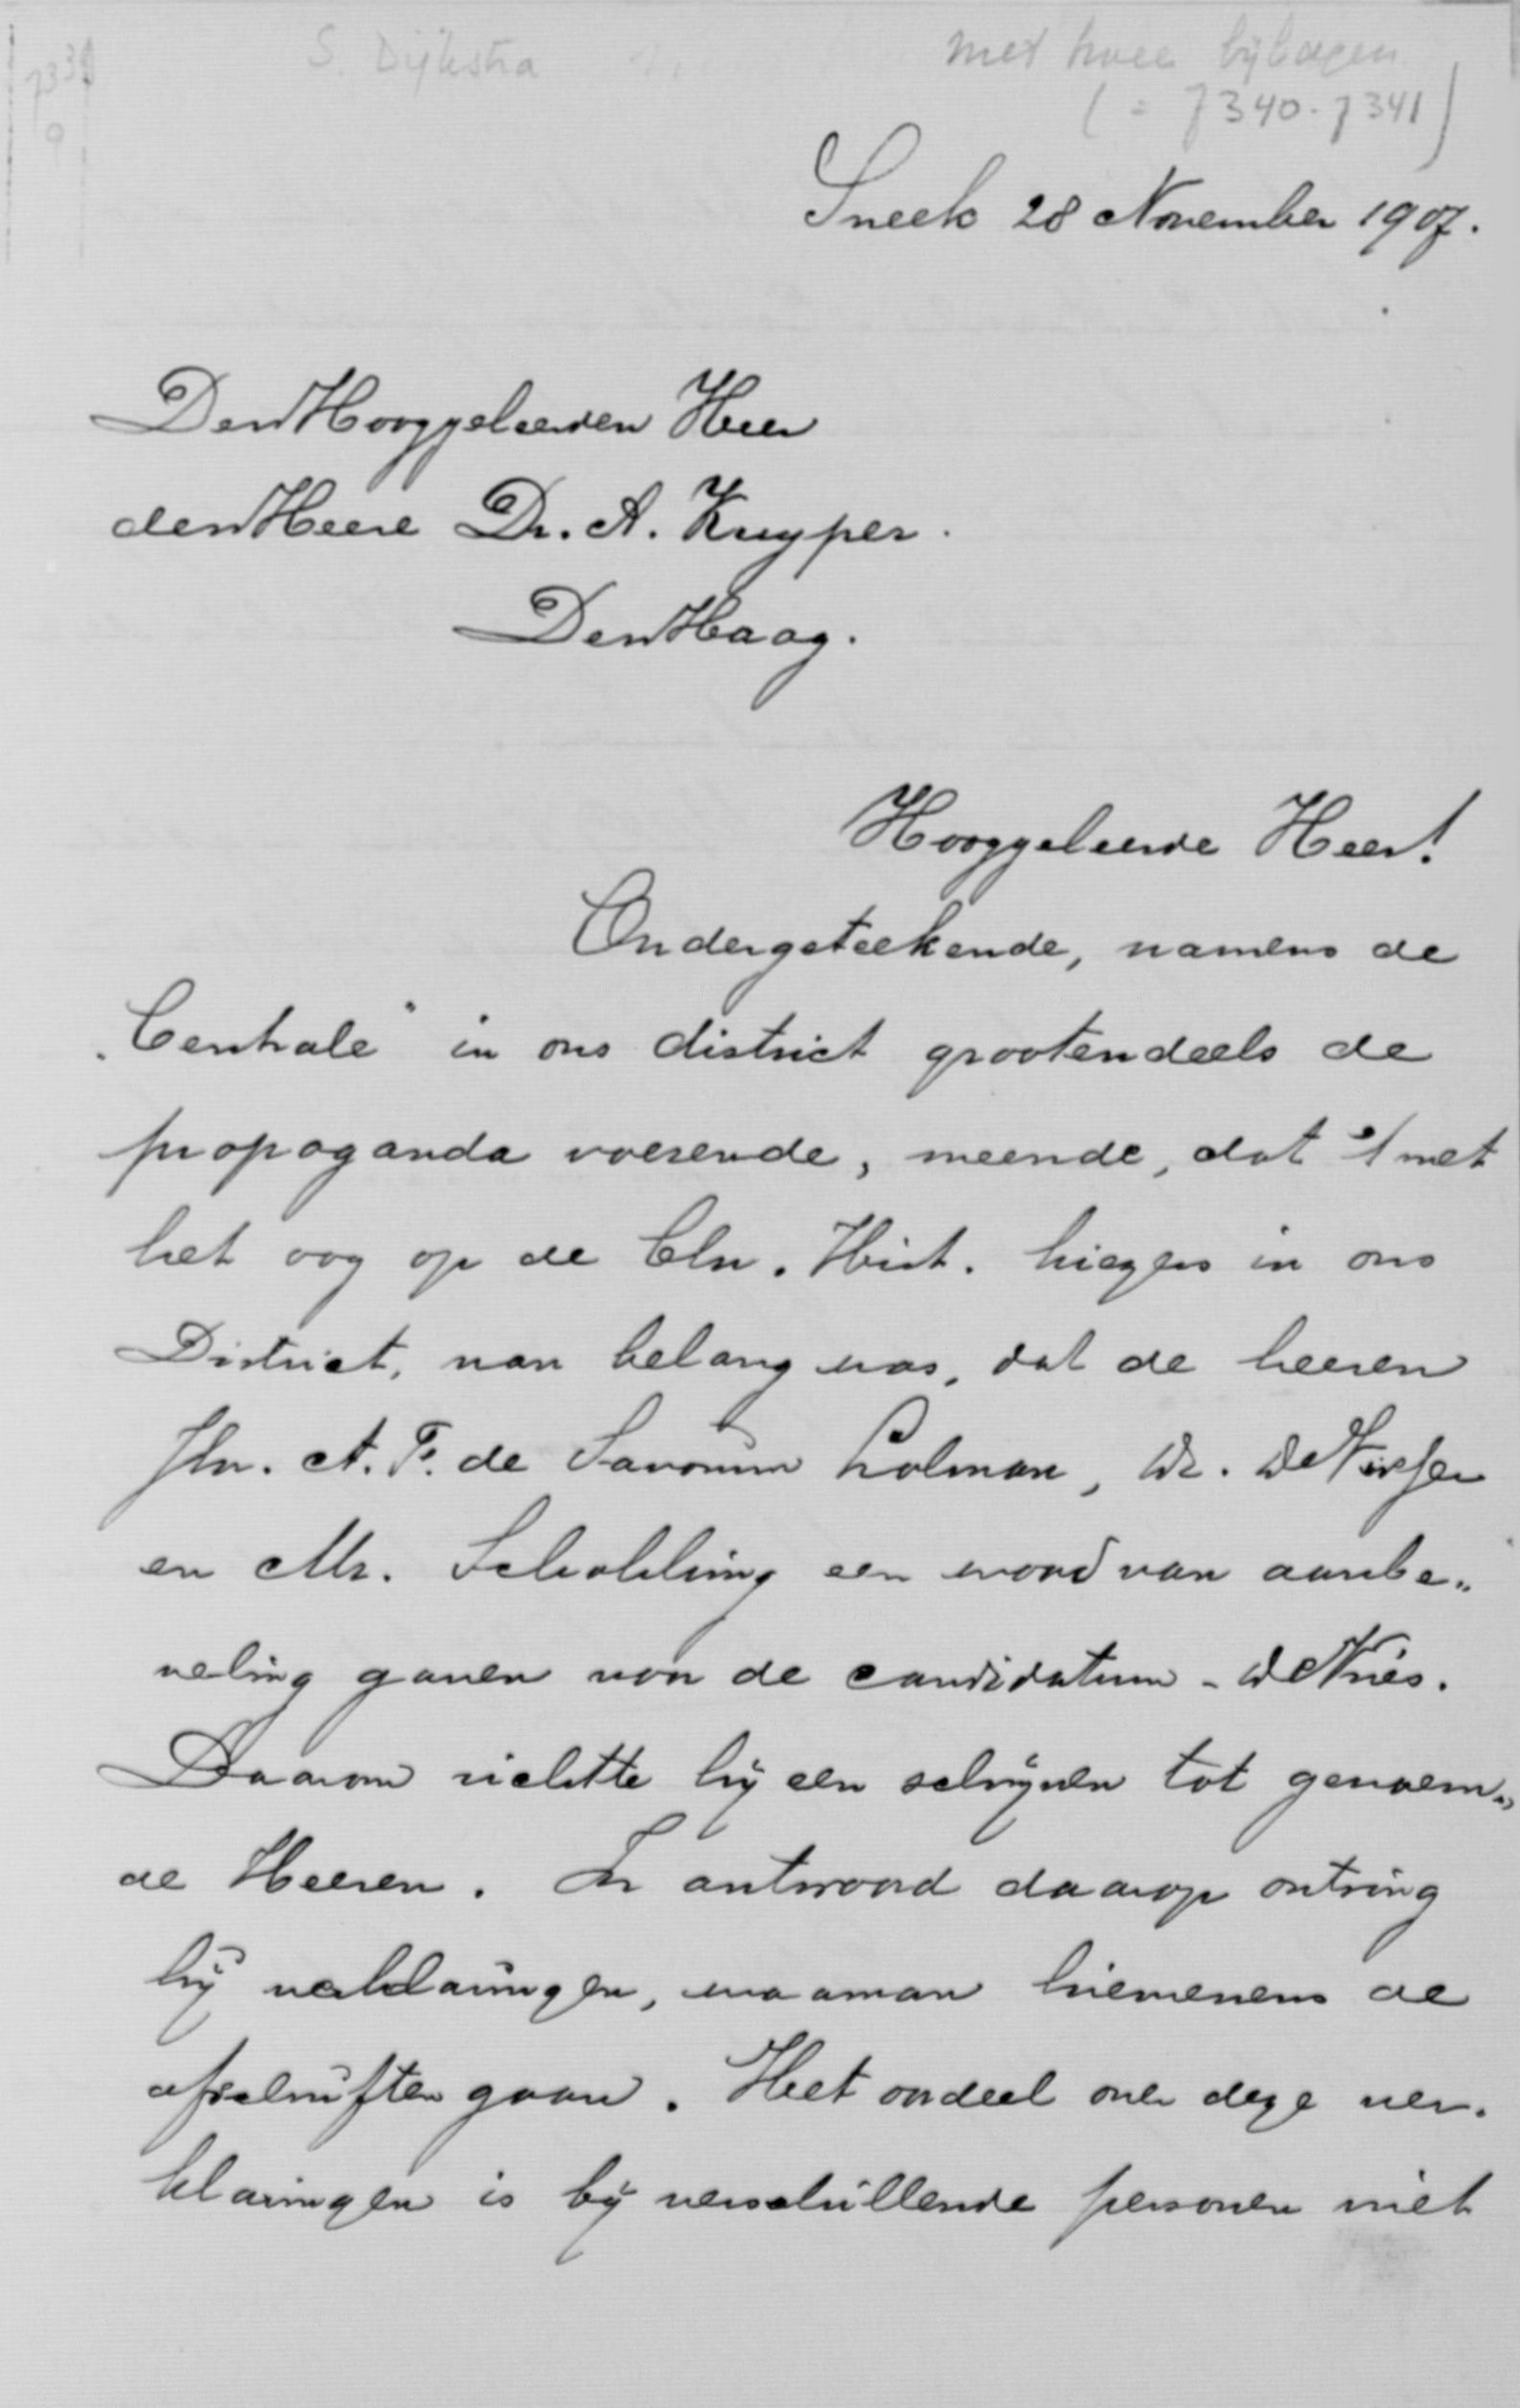 S. Dijkstra
met twee bijlagen
(= 7340-7341)
7339
Sneek 28 November 1907.
Den Hooggeleerden Heer
den Heere Dr. A. Kuyper.
Den Haag.
Hooggeleerde Heer!
Ondergeteekende, namens de
"Centrale" in ons district grootendeels de
propaganda voerende, meende, dat 't met
het oog op de Chr. Hist. kiezers in ons
District, van belang was, dat de heeren
Jhr. A. F. de Savornin Lohman, Dr. De Visser
en Mr. Schokking een woord van aanbe„
veling gaven voor de candidatuur - De Vries.
Daarom richtte hij een schrijven tot genoem„
de Heeren. In antwoord daarop ontving
hij verklaringen, waarvan hiernevens de
afschriften gaan. Het oordeel over deze ver„
klaringen is bij verschillende personen niet